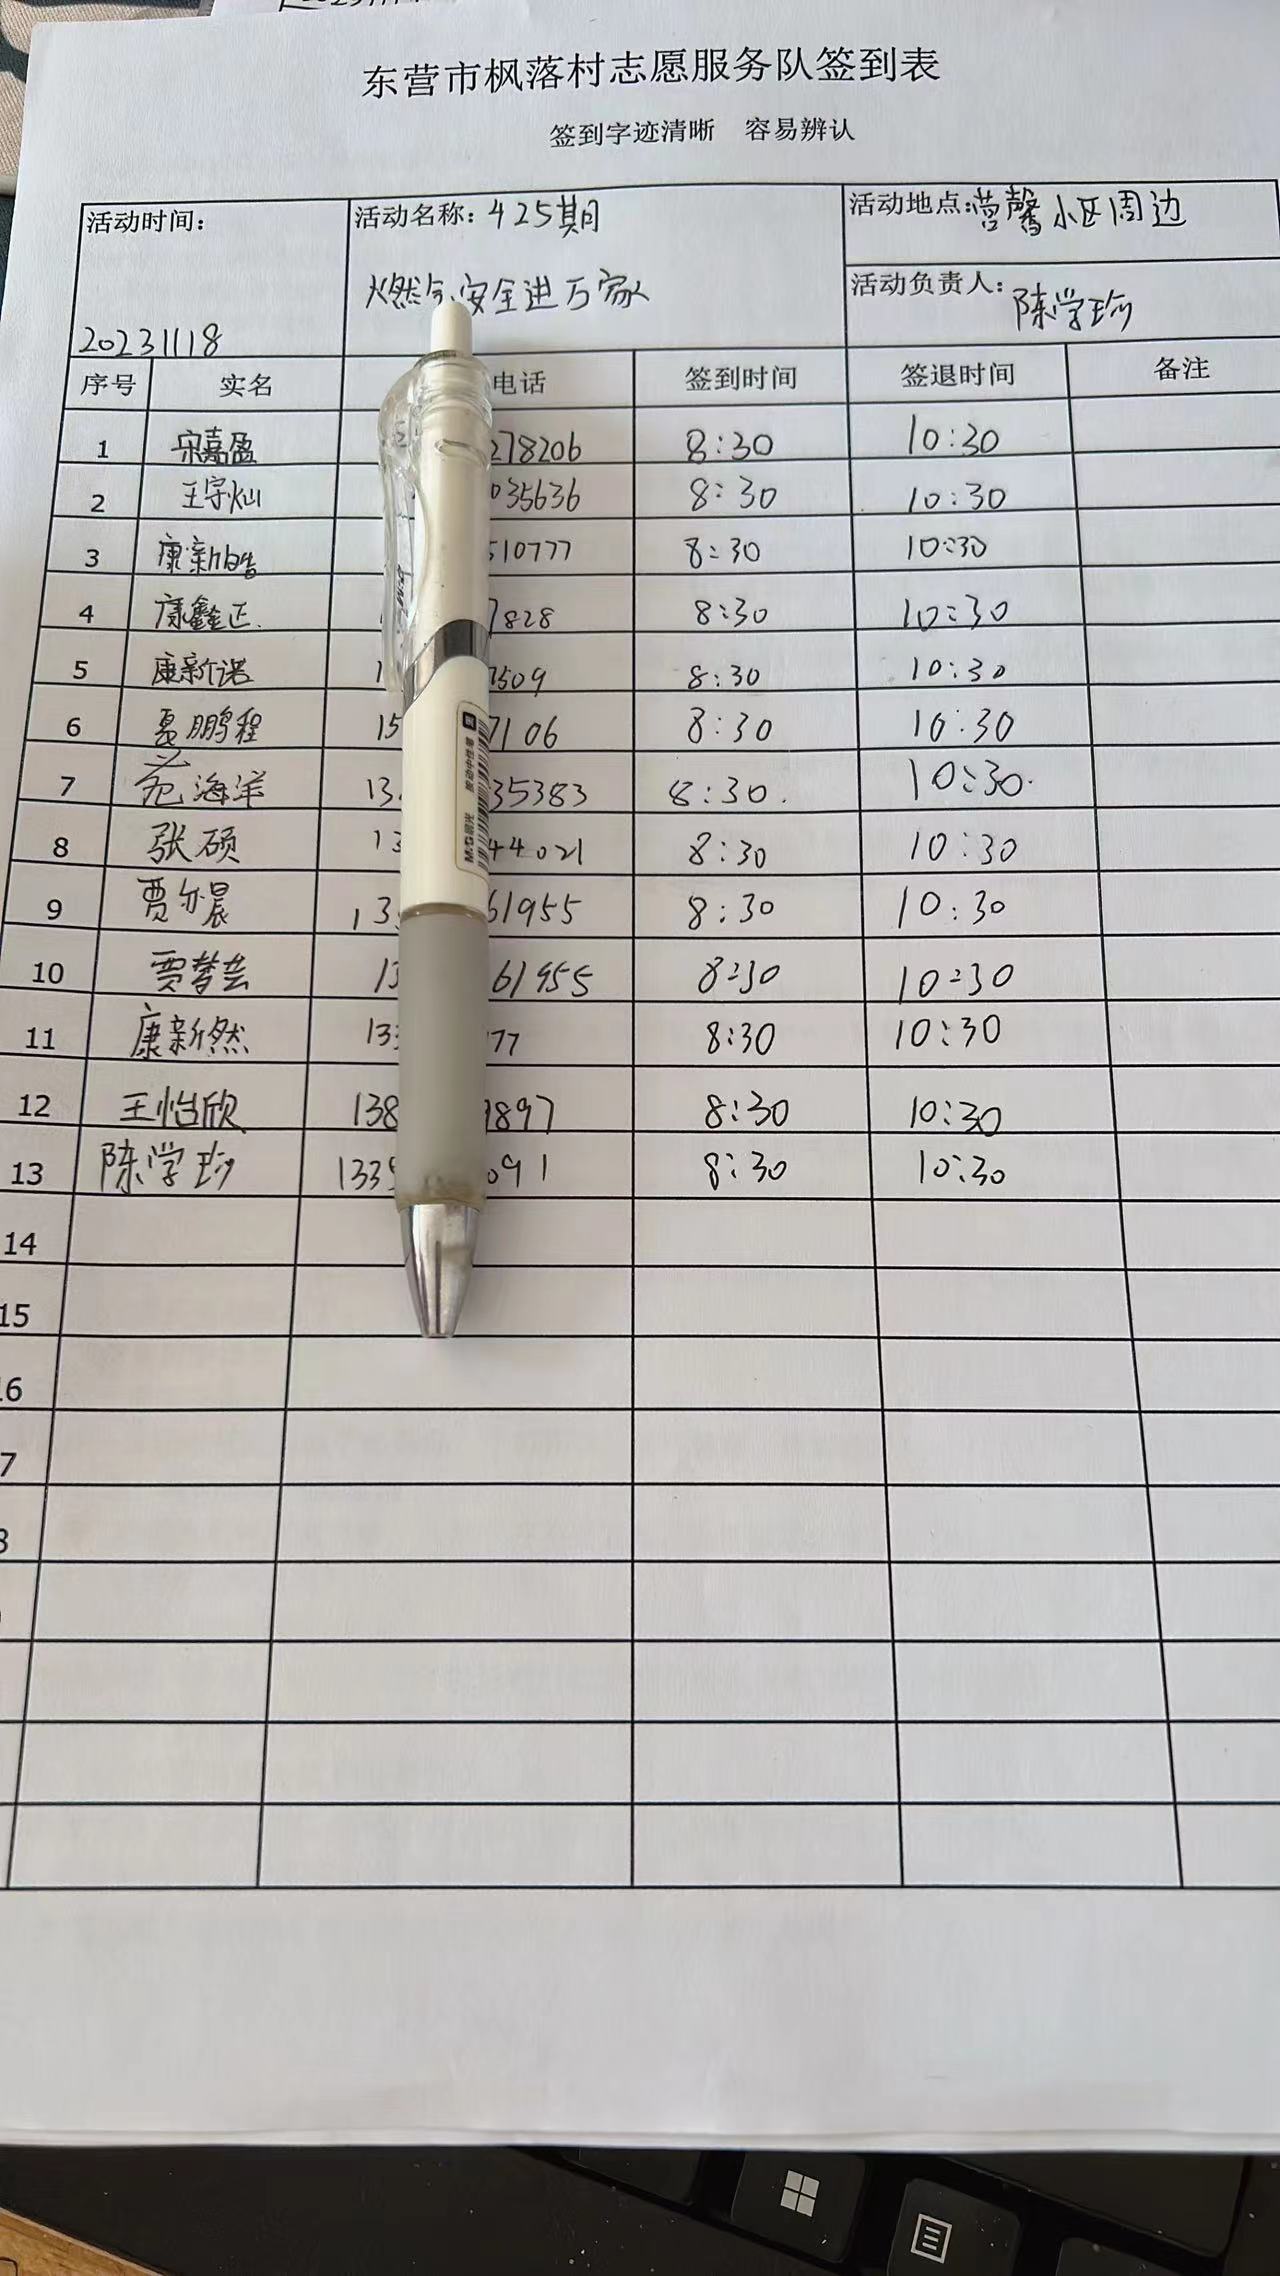 东营市枫落村志愿服务队签到表
签到字迹清晰 容易辨认
活动时间: 20231118
活动名称: 425期
燃气安全进万家
活动地点:营馨小区周边
活动负责人: 陈学珍
序号 实名 电话 签到时间 签退时间 备注
1 宋嘉盈 278206 8:30 10:30
2 王宇灿 035636 8:30 10:30
3 康新皓 510777 8:30 10:30
4 康鑫正 7828 8:30 10:30
5 康新诺 1 7509 8:30 10:30
6 聂鹏程 15 7106 8:30 10:30
7 范海洋 13 35383 8:30 10:30
8 张硕 13 44021 8:30 10:30
9 贾亦晨 13 61955 8:30 10:30
10 贾梦芸 13 61955 8:30 10:30
11 康新然 133 177 8:30 10:30
12 王怡欣 138 9897 8:30 10:30
13 陈学珍 1339 091 8:30 10:30
14
15
16
7
8
M&G晨光